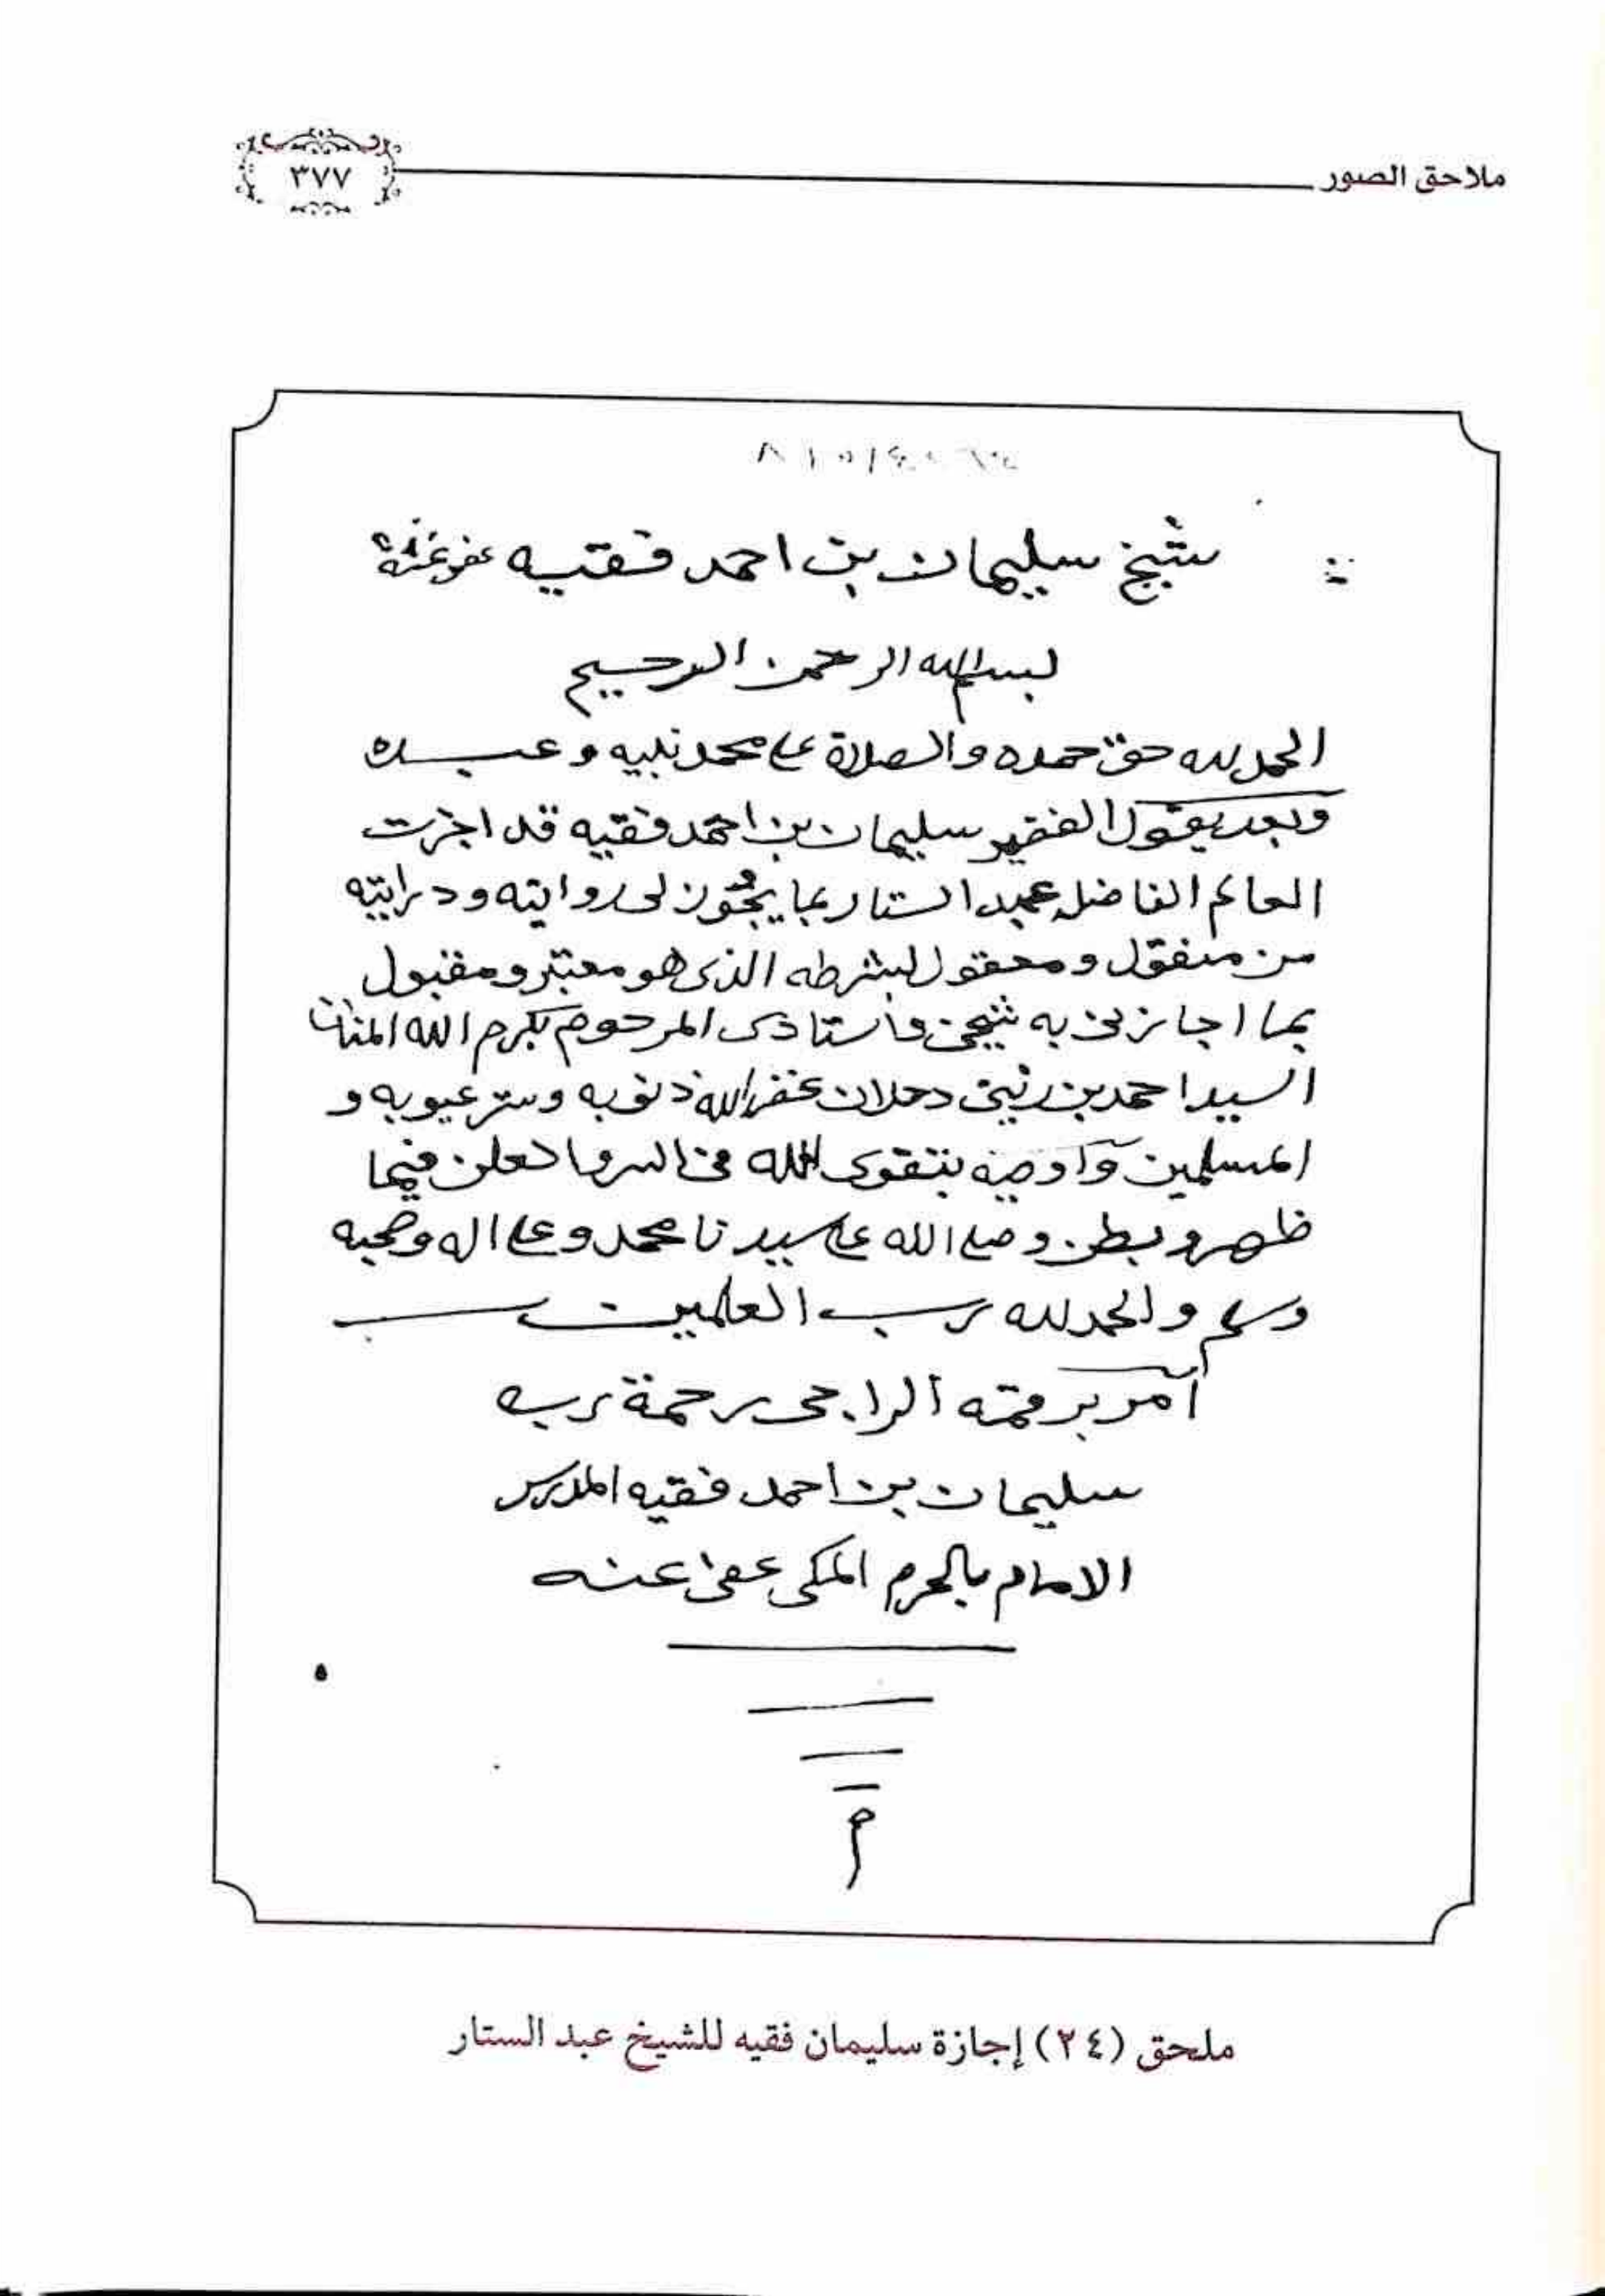 ملاحق الصور
٣٧٧
شيخ سليمان بن احمد فقيه عفي عنه
بسم الله الرحمن الرحيم
الحمد لله حق حمده والصلاة على محمد نبيه وعبده
وبعد يقول الفقير سليمان بن احمد فقيه قد اجزت
العالم الفاضل عبد الستار بما يجوز لى روايته ودرايته
من منقول ومعقول بشرطه الذى هو معتبر ومقبول
بما اجازنى به شيخى واستاذى المرحوم بكرم الله المنان
السيد احمد بن زينى دحلان غفر الله ذنوبه وستر عيوبه و
المسلمين واوصيه بتقوى الله فى السر والعلن فيما
ظهر وبطن وصلى الله على سيدنا محمد وعلى اله وصحبه
وسلم والحمد لله رب العلمين
آمر برقمه الراجى رحمة ربه
سليمان بن احمد فقيه المدرس
الامام بالحرم المكى عفى عنه
م
ملحق (٢٤) إجازة سليمان فقيه للشيخ عبد الستار